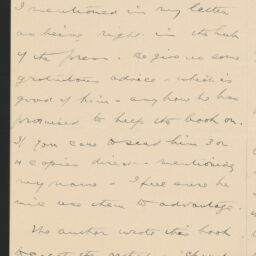 I mentioned in my letter
as being right in the hub
of the press. He gives us some
gratuitous advice - which is
good of him - anyhow he has
promised to help the book on.
If you care to send him 3 or
4 copies direct - mentioning
my name - I feel sure he
will use them to advantage.
The author wrote this book
to